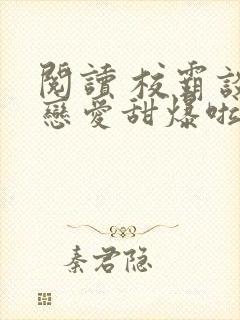 閱讀 校霸談
戀愛甜爆啦
秦君隐